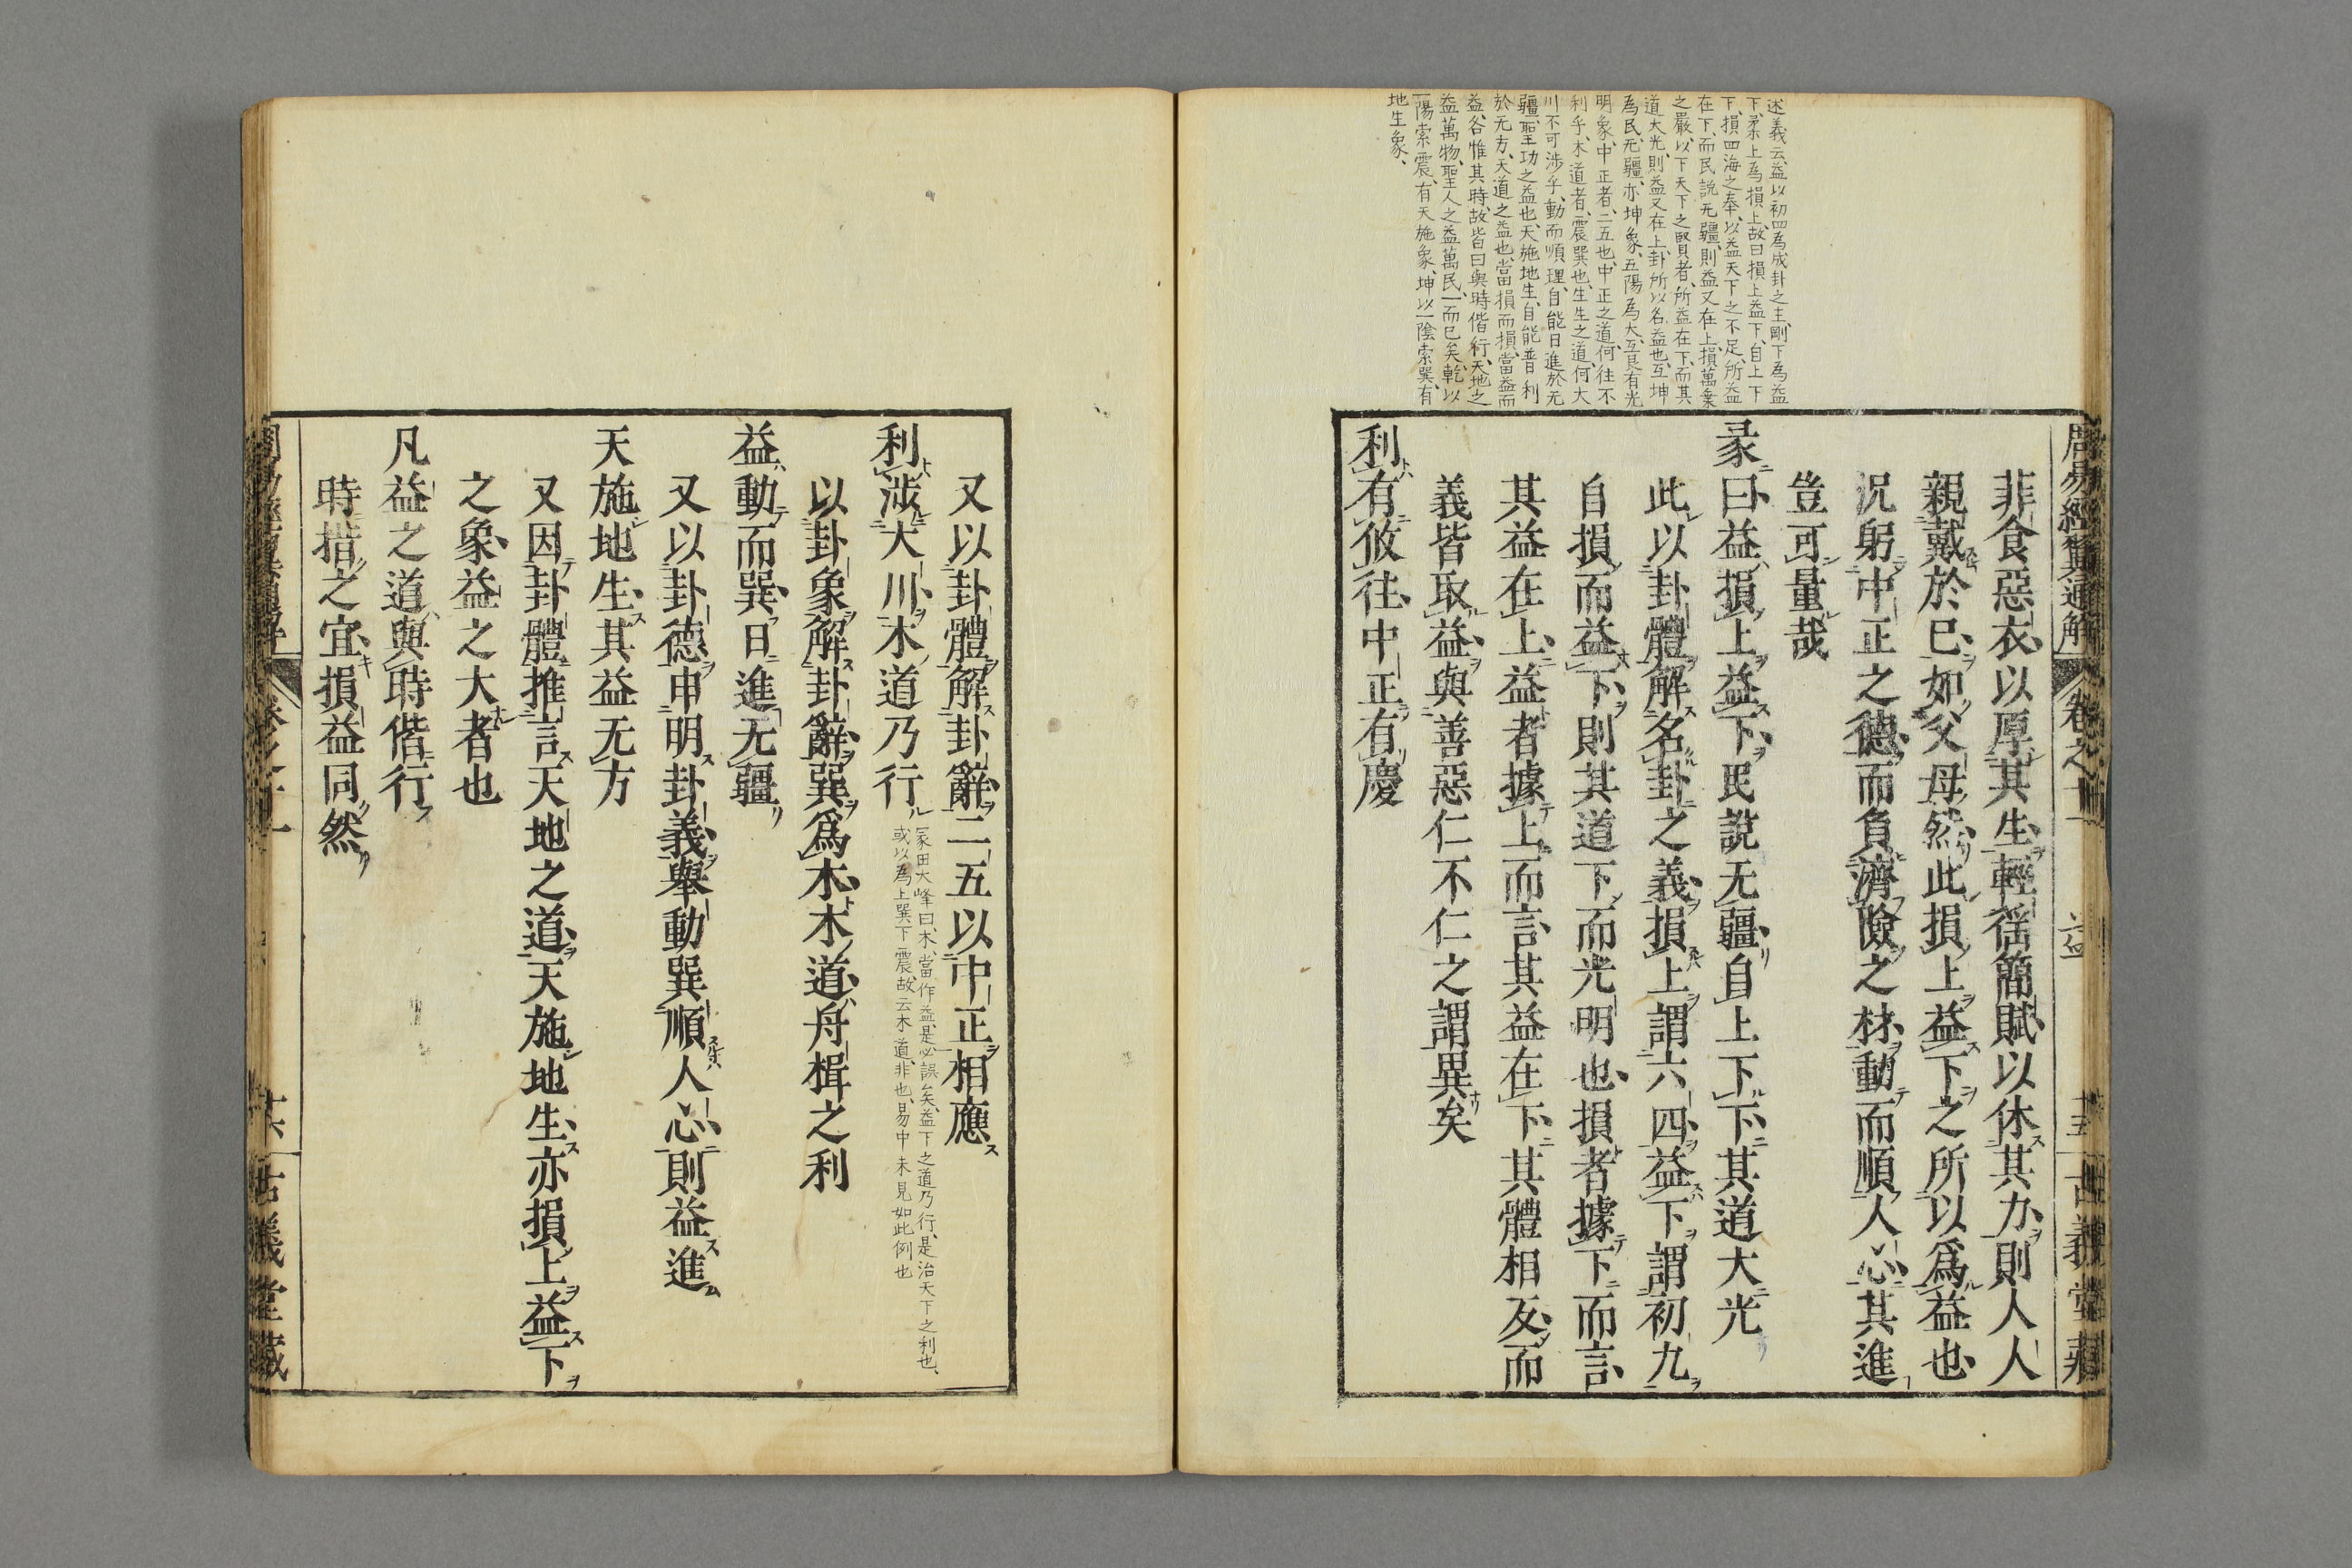 述義云、益以初四為成卦之主、剛下為益
下、柔上為損上、故曰損上益下、自上下
下、損四海之奉、以益天下之不足、所益
在下、而民說无疆、則益又在上、損萬乗
之嚴、以下天下之賢者、所益在下、而其
道大光、則益又在上、卦所以名益也、互坤
為民、无疆、亦坤象、五陽為大、互艮有光
明象、中正者、二五也、中正之道、何往不
利乎、木道者、震巽也、生生之道、何大
川不可渉乎、動而順理、自能日進於无
疆、聖功之益也、天施地生、自能普利
於无方、天道之益也、當損而損、當益而
益、各惟其時、故皆曰與時偕行、天地之
益萬物、聖人之益萬民、一而已矣、乾以
一陽索震、有天施象、坤以一陰索巽、有
地生象、
周易經翼通解 卷之十一 益 十五 古義堂藏
非食惡衣以厚其生輕徭簡賦以休其力則人人
親戴於已如父母然此損上益下之所以爲益也
況躬中正之德而負濟險之材動而順人心其進
豈可量哉
彖曰益損上益下民說无疆自上下下其道大光
此以卦體解名卦之義損上謂六四益下謂初九
自損而益下則其道下而光明也損者據下而言
其益在上益者據上而言其益在下其體相反而
義皆取益與善惡仁不仁之謂異矣
利有攸往中正有慶
又以卦體解卦辭二五以中正相應
利涉大川木道乃行
冢田大峰曰、木、當作益、是必誤矣、益下之道乃行、是治天下之利也、
或以為上巽下震、故云木道、非也、易中未見如此例也
以卦象解卦辭巽爲木木道舟楫之利
益動而巽日進无疆
又以卦德申明卦義舉動巽順人心則益進
天施地生其益无方
又因卦體推言天地之道天施地生亦損上益下
之象益之大者也
凡益之道與時偕行
時措之宜損益同然
周易經翼通解 卷之十一 十六 古義堂藏